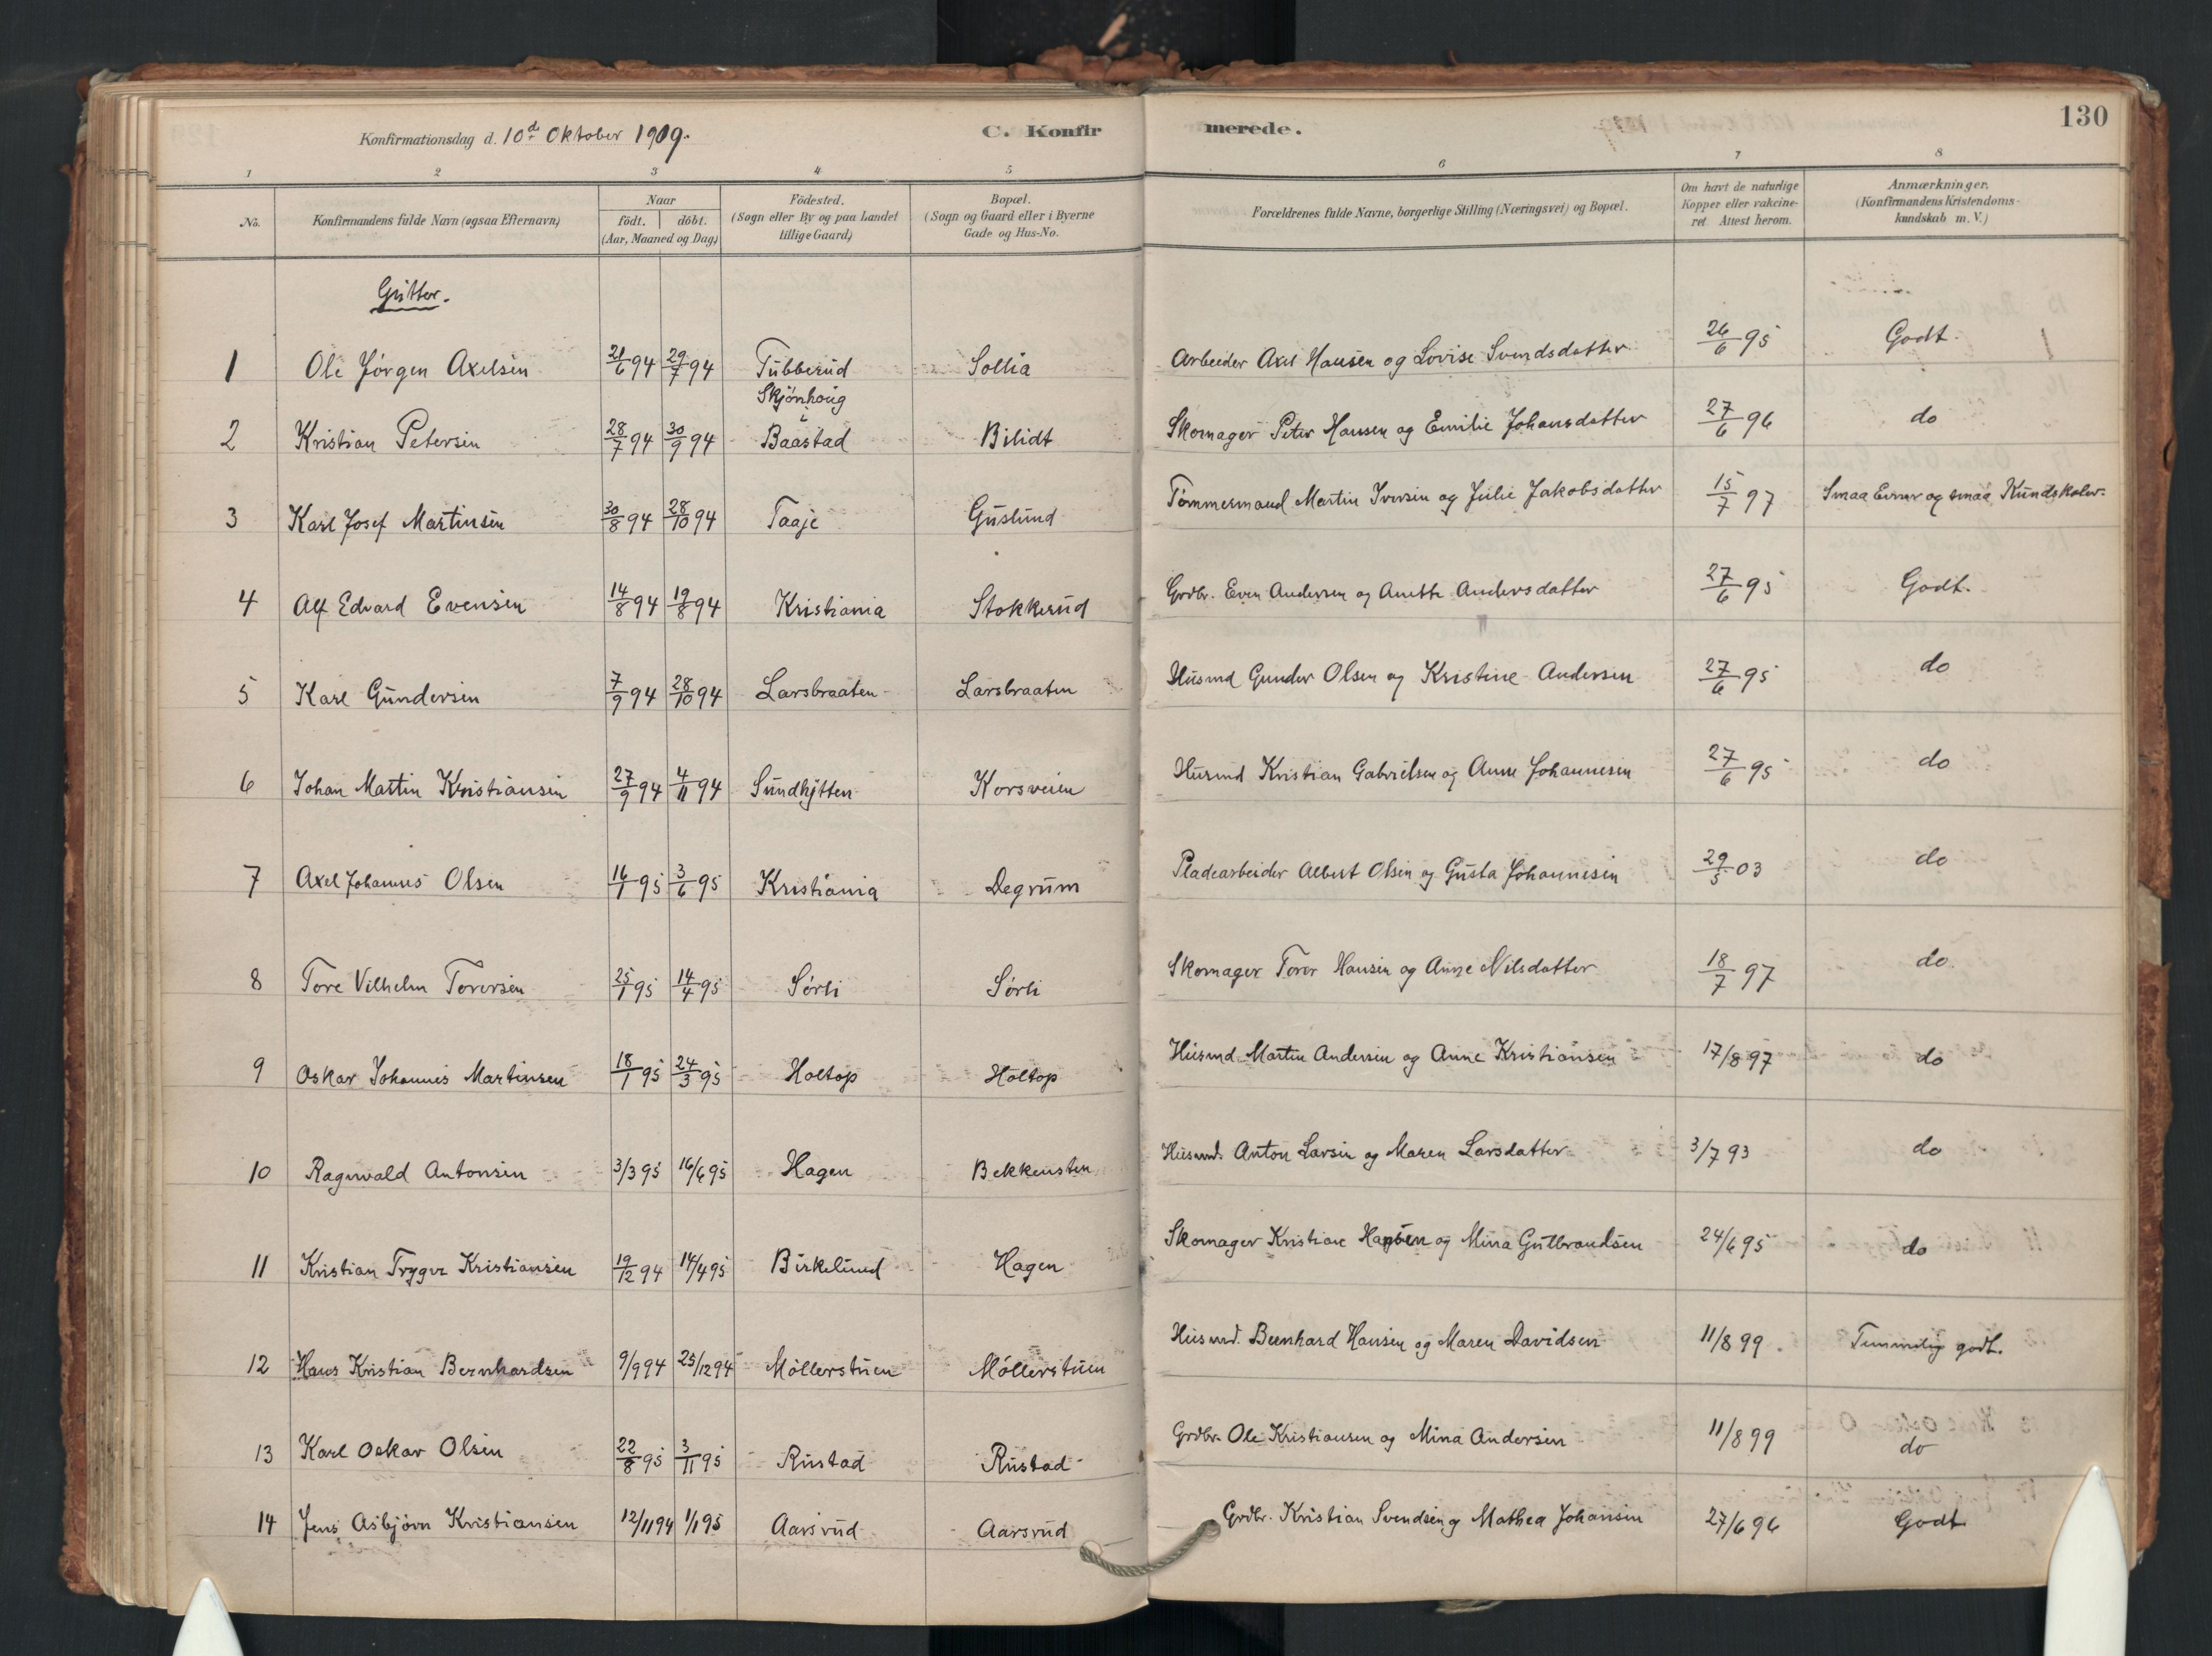 130
Konfirmationsdag d. 10d Oktober 1909.
C. Konfirmerede.
1 2 3 4 5 6 7 8
No.
Konfirmandens fulde Navn (ogsaa Efternavn)
Naar
födt. döbt.
(Aar, Maaned og Dag)
Födested.
(Sogn eller By og paa Landet
tillige Gaard)
Bopæl.
(Sogn og Gaard eller i Byerne
Gade og Hus-No.
Forældrenes fulde Navne, borgerlige Stilling (Næringsvei) og Bopæl.
Om havt de naturlige
Kopper eller vakcine-
ret Attest herom.
Anmærkninger.
(Konfirmandens Kristendoms-
kundskab m. V.)
Gutter.
1 Ole Jörgen Axelsen 21/6 94 29/7 94 Tubberud Sollia Arbeider Axel Hansen og Lovise Svendsdatter 26/6 95 Godt.
2 Kristian Petersen 28/7 94 30/9 94 Skjönhoug i Baastad Bilidt Skomager Peter Hansen og Emilie Johansdatter 27/6 96 do
3 Karl Josef Martinsen 30/8 94 28/10 94 Taaje Guslund Tömmermand Martin Iversen og Julie Jakobsdatter 15/7 97 Smaa Evner og smaa Kundskaber.
4 Alf Edvard Evensen 14/8 94 19/8 94 Kristiania Stokkerud Grdbr. Even Andersen og Anette Andersdatter 27/6 95 Godt.
5 Karl Gundersen 7/9 94 28/10 94 Larsbraaten Larsbraaten Husmd Gunder Olsen og Kristine Andersen 27/6 95 do
6 Johan Martin Kristiansen 27/9 94 4/11 94 Sundhytten Korsveien Husmd Kristian Gabrielsen og Anne Johannesen 27/6 95 do
7 Axel Johannes Olsen 16/1 95 3/6 95 Kristiania Degrum Pladearbeider Albert Olsen og Gusta Johannesen 29/5 03 do
8 Tore Vilhelm Torersen 25/1 95 14/4 95 Sörli Sörli Skomager Torer Hansen og Anne Nilsdatter 18/7 97 do.
9 Oskar Johannes Martinsen 18/1 95 24/3 95 Holtop Holtop Husmd. Martin Andersen og Anne Kristiansen 17/8 97 do
10 Ragnvald Antonsen 3/3 95 16/6 95 Hagen Bekkensten Husmd. Anton Larsen og Maren Larsdatter 3/7 93 do
11 Kristian Trygve Kristiansen 19/12 94 14/4 95 Birkelund Hagen Skomager Kristian Hansen og Mina Gulbrandsen 24/6 95 do
12 Hans Kristian Bernhardsen 9/9 94 25/12 94 Möllerstuen Möllerstuen Husmd. Bernhard Hansen og Maren Davidsen 11/8 99. Temmelig godt.
13 Karl Oskar Olsen 22/8 95 3/11 95 Rustad Rustad Grdbr. Ole Kristiansen og Mina Andersen 11/8 99 do
14 Jens Asbjörn Kristiansen 12/11 94 1/1 95 Aarsrud Aarsrud Grdbr. Kristian Svendsen og Mathea Johansen 27/6 96 Godt